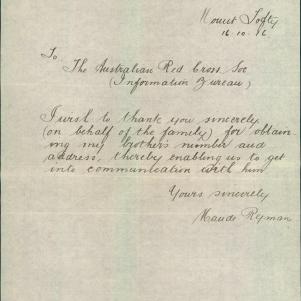 Mount Lofty
16.10.16.
To
The Australian Red Cross Soc
(Information Bureau)
I wish to thank you sincerely
(on behalf of the family) for obtain
ing my brothers number and
address, thereby enabling us to get
into communication with him
Yours sincerely
Maude Ryman